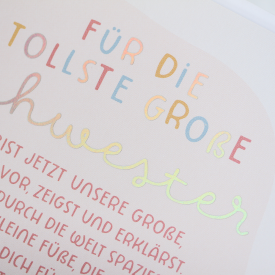 FÜR DIE
TOLLSTE GROßE
hwester
IST JETZT UNSERE GROßE,
VOR, ZEIGST UND ERKLÄRST
DURCH DIE WELT SPAZIE
LEINE FÜßE, DIE
DICH FÜ